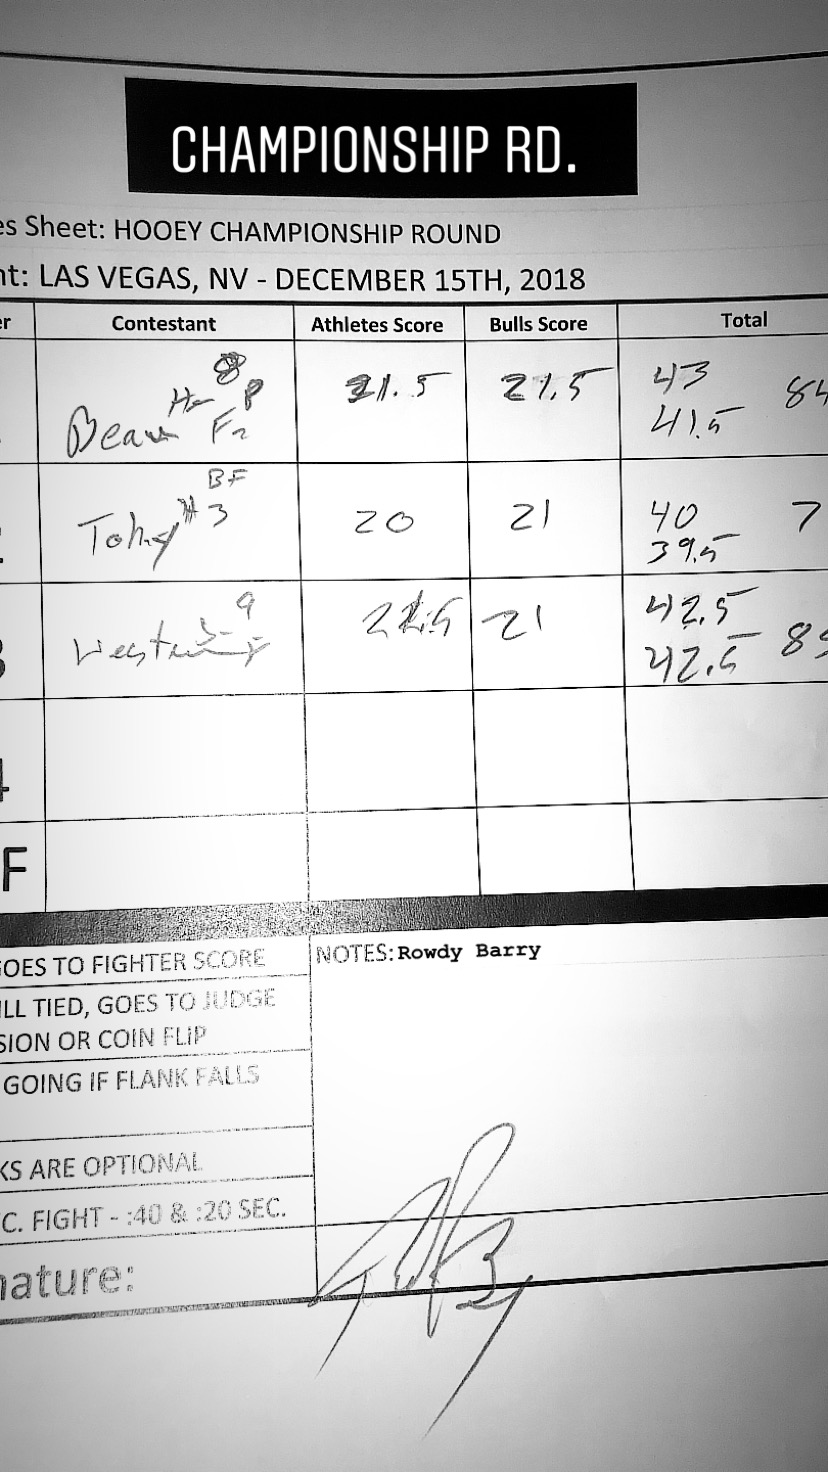 CHAMPIONSHIP RD.
es Sheet: HOOEY CHAMPIONSHIP ROUND
nt: LAS VEGAS, NV - DECEMBER 15TH, 2018
er Contestant Athletes Score Bulls Score Total
8
Beau 21.5 21.5 43 84
41.5
BF
#3 20 21 40 7
39.5
9
21 42.5
42.5 85
4
F
GOES TO FIGHTER SCORE
NOTES: Rowdy Barry
ILL TIED, GOES TO JUDGE
SION OR COIN FLIP
GOING IF FLANK FALLS
KS ARE OPTIONAL
C. FIGHT - :40 & :20 SEC.
nature: